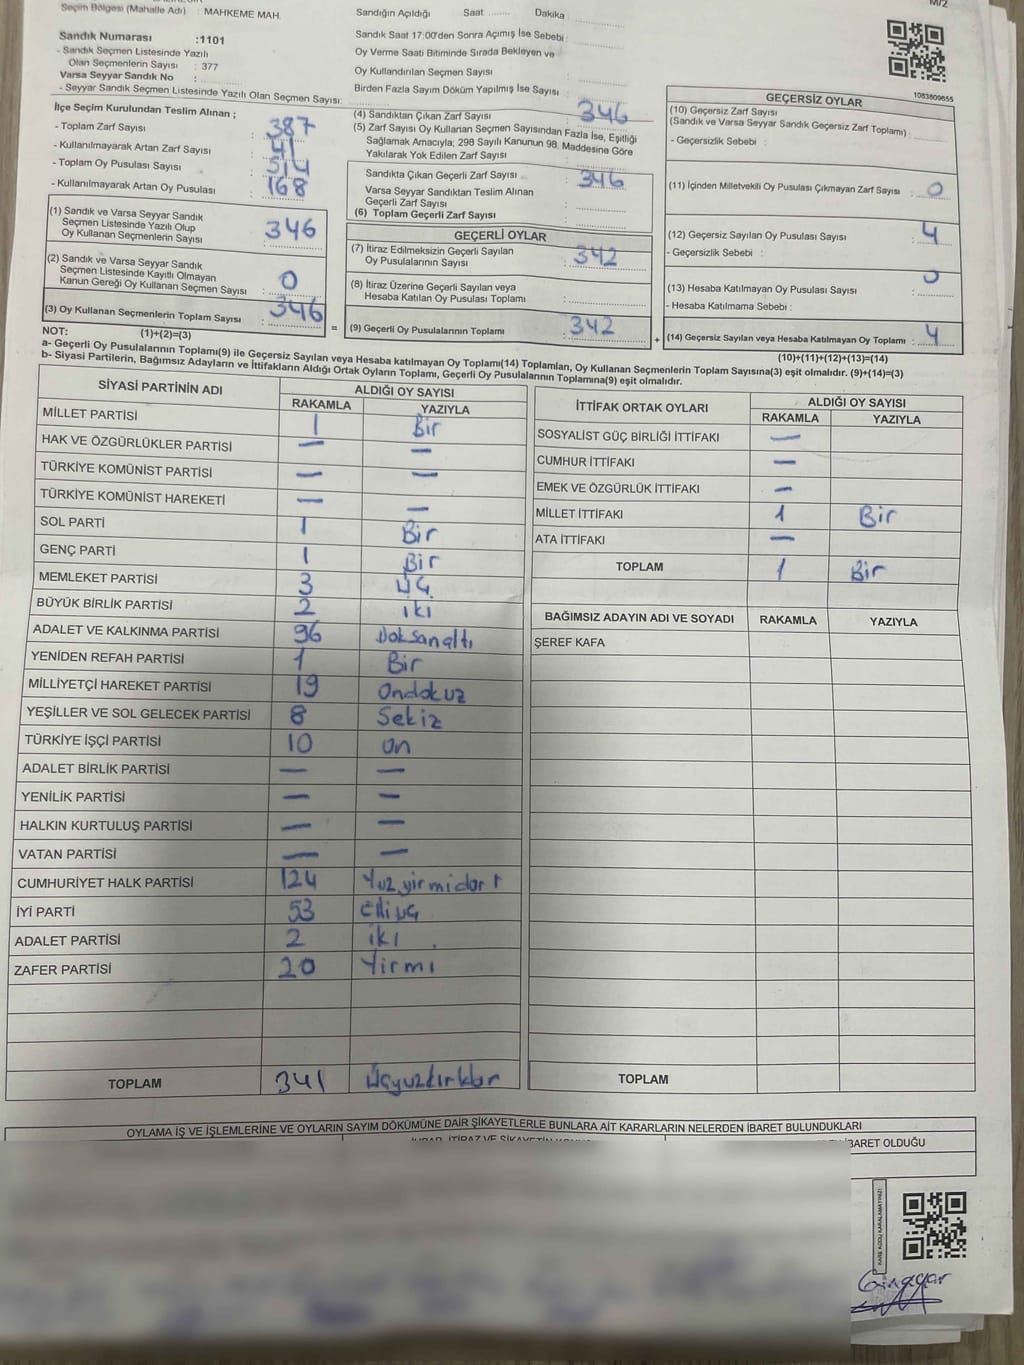 Seçim Bölgesi (Mahalle Adı) : MAHKEME MAH.
Sandık Numarası :1101
- Sandık Seçmen Listesinde Yazılı
Olan Seçmenlerin Sayısı : 377
Varsa Seyyar Sandık No :
- Seyyar Sandık Seçmen Listesinde Yazılı Olan Seçmen Sayısı:
Sandığın Açıldığı Saat ........ Dakika :
Sandık Saat 17:00'den Sonra Açımış İse Sebebi :
Oy Verme Saati Bitiminde Sırada Bekleyen ve
Oy Kullandırılan Seçmen Sayısı
Birden Fazla Sayım Döküm Yapılmış İse Sayısı :
M/2
1083809655
İlçe Seçim Kurulundan Teslim Alınan ;
- Toplam Zarf Sayısı : 387
- Kullanılmayarak Artan Zarf Sayısı : 41
- Toplam Oy Pusulası Sayısı : 514
- Kullanılmayarak Artan Oy Pusulası : 168
(1) Sandık ve Varsa Seyyar Sandık
Seçmen Listesinde Yazılı Olup
Oy Kullanan Seçmenlerin Sayısı : 346
(2) Sandık ve Varsa Seyyar Sandık
Seçmen Listesinde Kayıtlı Olmayan
Kanun Gereği Oy Kullanan Seçmen Sayısı : 0
(3) Oy Kullanan Seçmenlerin Toplam Sayısı : 346
(4) Sandıktan Çıkan Zarf Sayısı : 346
(5) Zarf Sayısı Oy Kullanan Seçmen Sayısından Fazla İse, Eşitliği
Sağlamak Amacıyla; 298 Sayılı Kanunun 98. Maddesine Göre
Yakılarak Yok Edilen Zarf Sayısı :
Sandıkta Çıkan Geçerli Zarf Sayısı : 346
Varsa Seyyar Sandıktan Teslim Alınan
Geçerli Zarf Sayısı :
(6) Toplam Geçerli Zarf Sayısı :
GEÇERLİ OYLAR
(7) İtiraz Edilmeksizin Geçerli Sayılan
Oy Pusulalarının Sayısı : 342
(8) İtiraz Üzerine Geçerli Sayılan veya
Hesaba Katılan Oy Pusulası Toplamı :
= (9) Geçerli Oy Pusulalarının Toplamı : 342
GEÇERSİZ OYLAR
(10) Geçersiz Zarf Sayısı
(Sandık ve Varsa Seyyar Sandık Geçersiz Zarf Toplamı) :
- Geçersizlik Sebebi :
(11) İçinden Milletvekili Oy Pusulası Çıkmayan Zarf Sayısı : 0
(12) Geçersiz Sayılan Oy Pusulası Sayısı : 4
- Geçersizlik Sebebi :
(13) Hesaba Katılmayan Oy Pusulası Sayısı : 0
- Hesaba Katılmama Sebebi :
+ (14) Geçersiz Sayılan veya Hesaba Katılmayan Oy Toplamı : 4
NOT: (1)+(2)=(3)
(10)+(11)+(12)+(13)=(14)
a- Geçerli Oy Pusulalarının Toplamı(9) ile Geçersiz Sayılan veya Hesaba katılmayan Oy Toplamı(14) Toplamları, Oy Kullanan Seçmenlerin Toplam Sayısına(3) eşit olmalıdır. (9)+(14)=(3)
b- Siyasi Partilerin, Bağımsız Adayların ve İttifakların Aldığı Ortak Oyların Toplamı, Geçerli Oy Pusulalarının Toplamına(9) eşit olmalıdır.
SİYASİ PARTİNİN ADI ALDIĞI OY SAYISI
RAKAMLA YAZIYLA
MİLLET PARTİSİ 1 Bir
HAK VE ÖZGÜRLÜKLER PARTİSİ — —
TÜRKİYE KOMÜNİST PARTİSİ — —
TÜRKİYE KOMÜNİST HAREKETİ — —
SOL PARTİ 1 Bir
GENÇ PARTİ 1 Bir
MEMLEKET PARTİSİ 3 üç
BÜYÜK BİRLİK PARTİSİ 2 iki
ADALET VE KALKINMA PARTİSİ 96 Doksanaltı
YENİDEN REFAH PARTİSİ 1 Bir
MİLLİYETÇİ HAREKET PARTİSİ 19 Ondokuz
YEŞİLLER VE SOL GELECEK PARTİSİ 8 Sekiz
TÜRKİYE İŞÇİ PARTİSİ 10 on
ADALET BİRLİK PARTİSİ — —
YENİLİK PARTİSİ — —
HALKIN KURTULUŞ PARTİSİ — —
VATAN PARTİSİ — —
CUMHURİYET HALK PARTİSİ 124 Yuzyirmidort
İYİ PARTİ 53 elliuç
ADALET PARTİSİ 2 iki
ZAFER PARTİSİ 20 Yirmi
TOPLAM 341 Üçyuzkırkbir
İTTİFAK ORTAK OYLARI ALDIĞI OY SAYISI
RAKAMLA YAZIYLA
SOSYALİST GÜÇ BİRLİĞİ İTTİFAKI —
CUMHUR İTTİFAKI —
EMEK VE ÖZGÜRLÜK İTTİFAKI —
MİLLET İTTİFAKI 1 Bir
ATA İTTİFAKI —
TOPLAM 1 Bir
BAĞIMSIZ ADAYIN ADI VE SOYADI RAKAMLA YAZIYLA
ŞEREF KAFA
TOPLAM
OYLAMA İŞ VE İŞLEMLERİNE VE OYLARIN SAYIM DÖKÜMÜNE DAİR ŞİKAYETLERLE BUNLARA AİT KARARLARIN NELERDEN İBARET BULUNDUKLARI
İBARET OLDUĞU